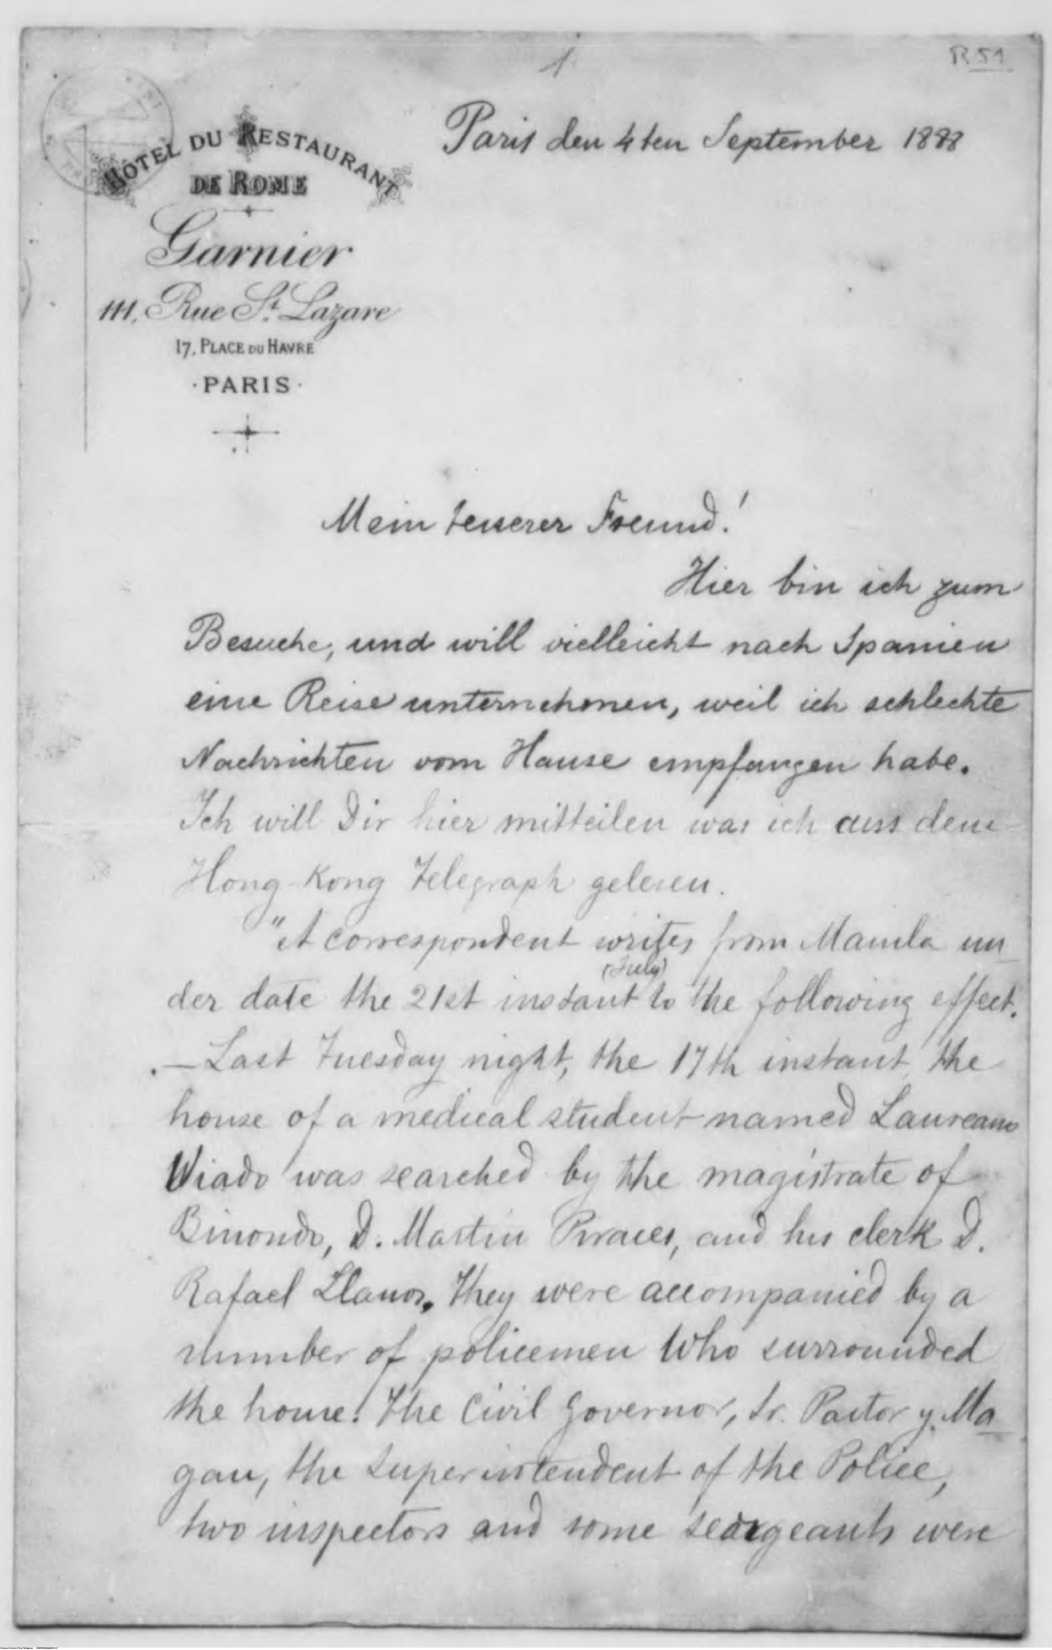 1
R 51
HÔTEL DU RESTAURANT
DE ROME
Garnier
111, Rue St. Lazare
17, PLACE DU HAVRE
·PARIS·
Paris den 4ten September 1888
Mein teuerer Freund!
Hier bin ich zum
Besuche, und will vielleicht nach Spanien
eine Reise unternehmen, weil ich schlechte
Nachrichten vom Hause empfangen habe.
Ich will Dir hier mitteilen was ich aus dem
Hong-Kong Telegraph gelesen.
"A correspondent writes from Manila un
der date the 21st instant (July) to the following effect.
—Last Tuesday night, the 17th instant, the
house of a medical student named Laureano
Viado was searched by the magistrate of
Binondo, D. Martin Piraces, and his clerk D.
Rafael Llanos. They were accompanied by a
number of policemen who surrounded
the home. The Civil Governor, Sr. Pastor y Ma
gan, the Superintendent of the Police,
two inspectors and some seargeants were